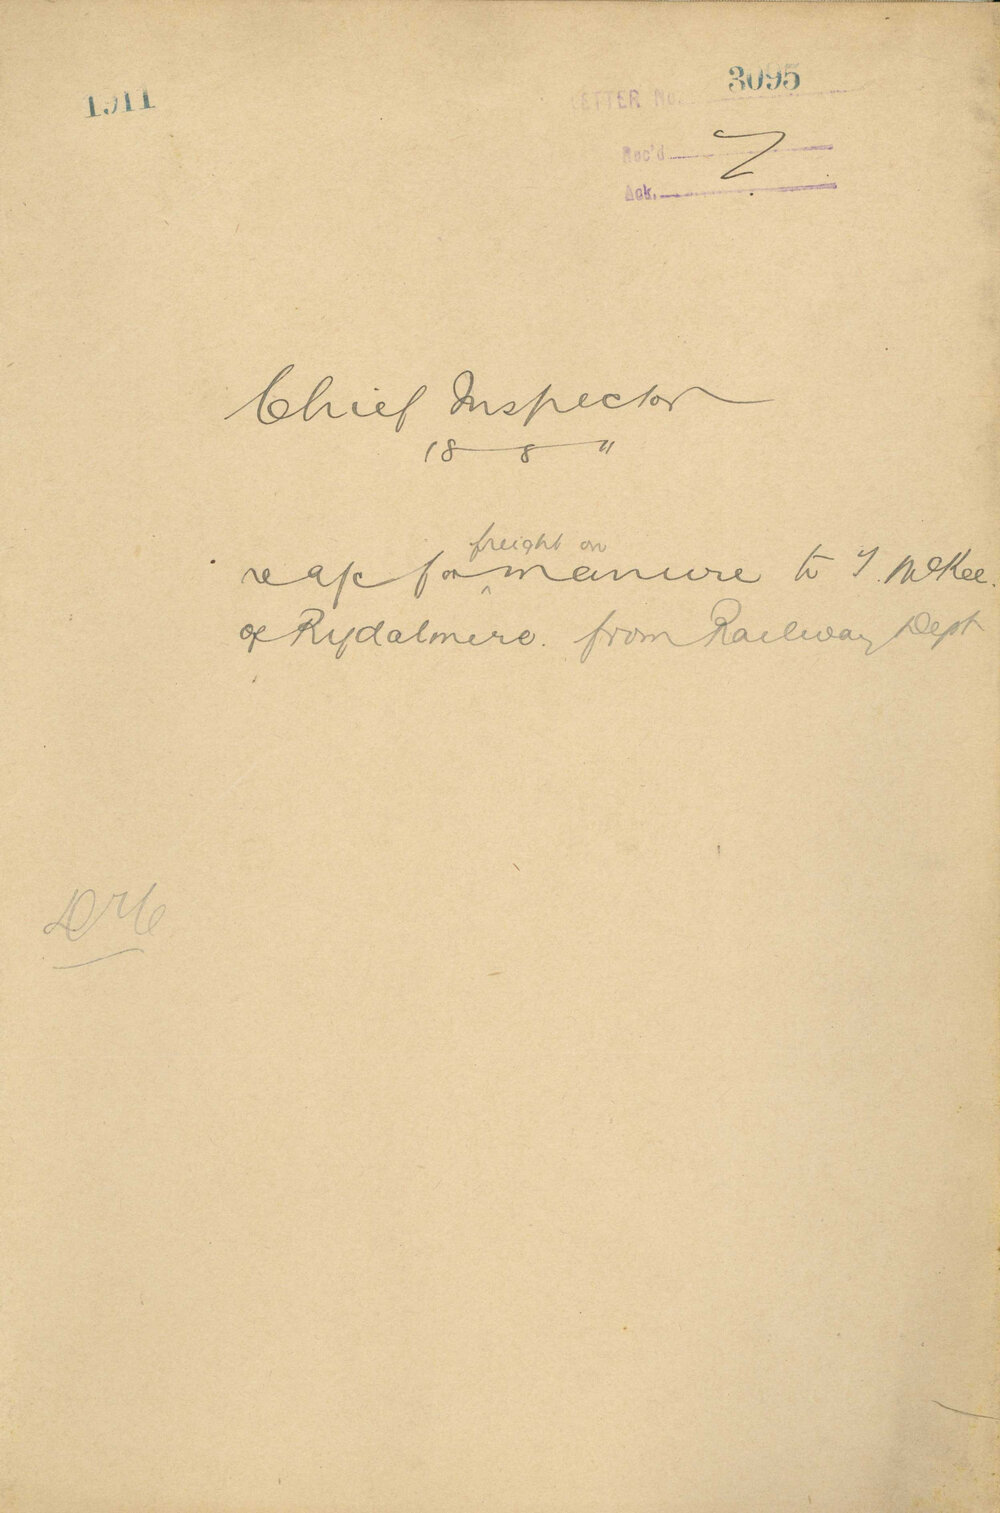 1911
LETTER No. 3095
Rec'd
Ack.
Chief Inspector
18 8 11
freight on
re a/c for ^ manure to T. McKee.
of Rydalmere. from Railway Dept